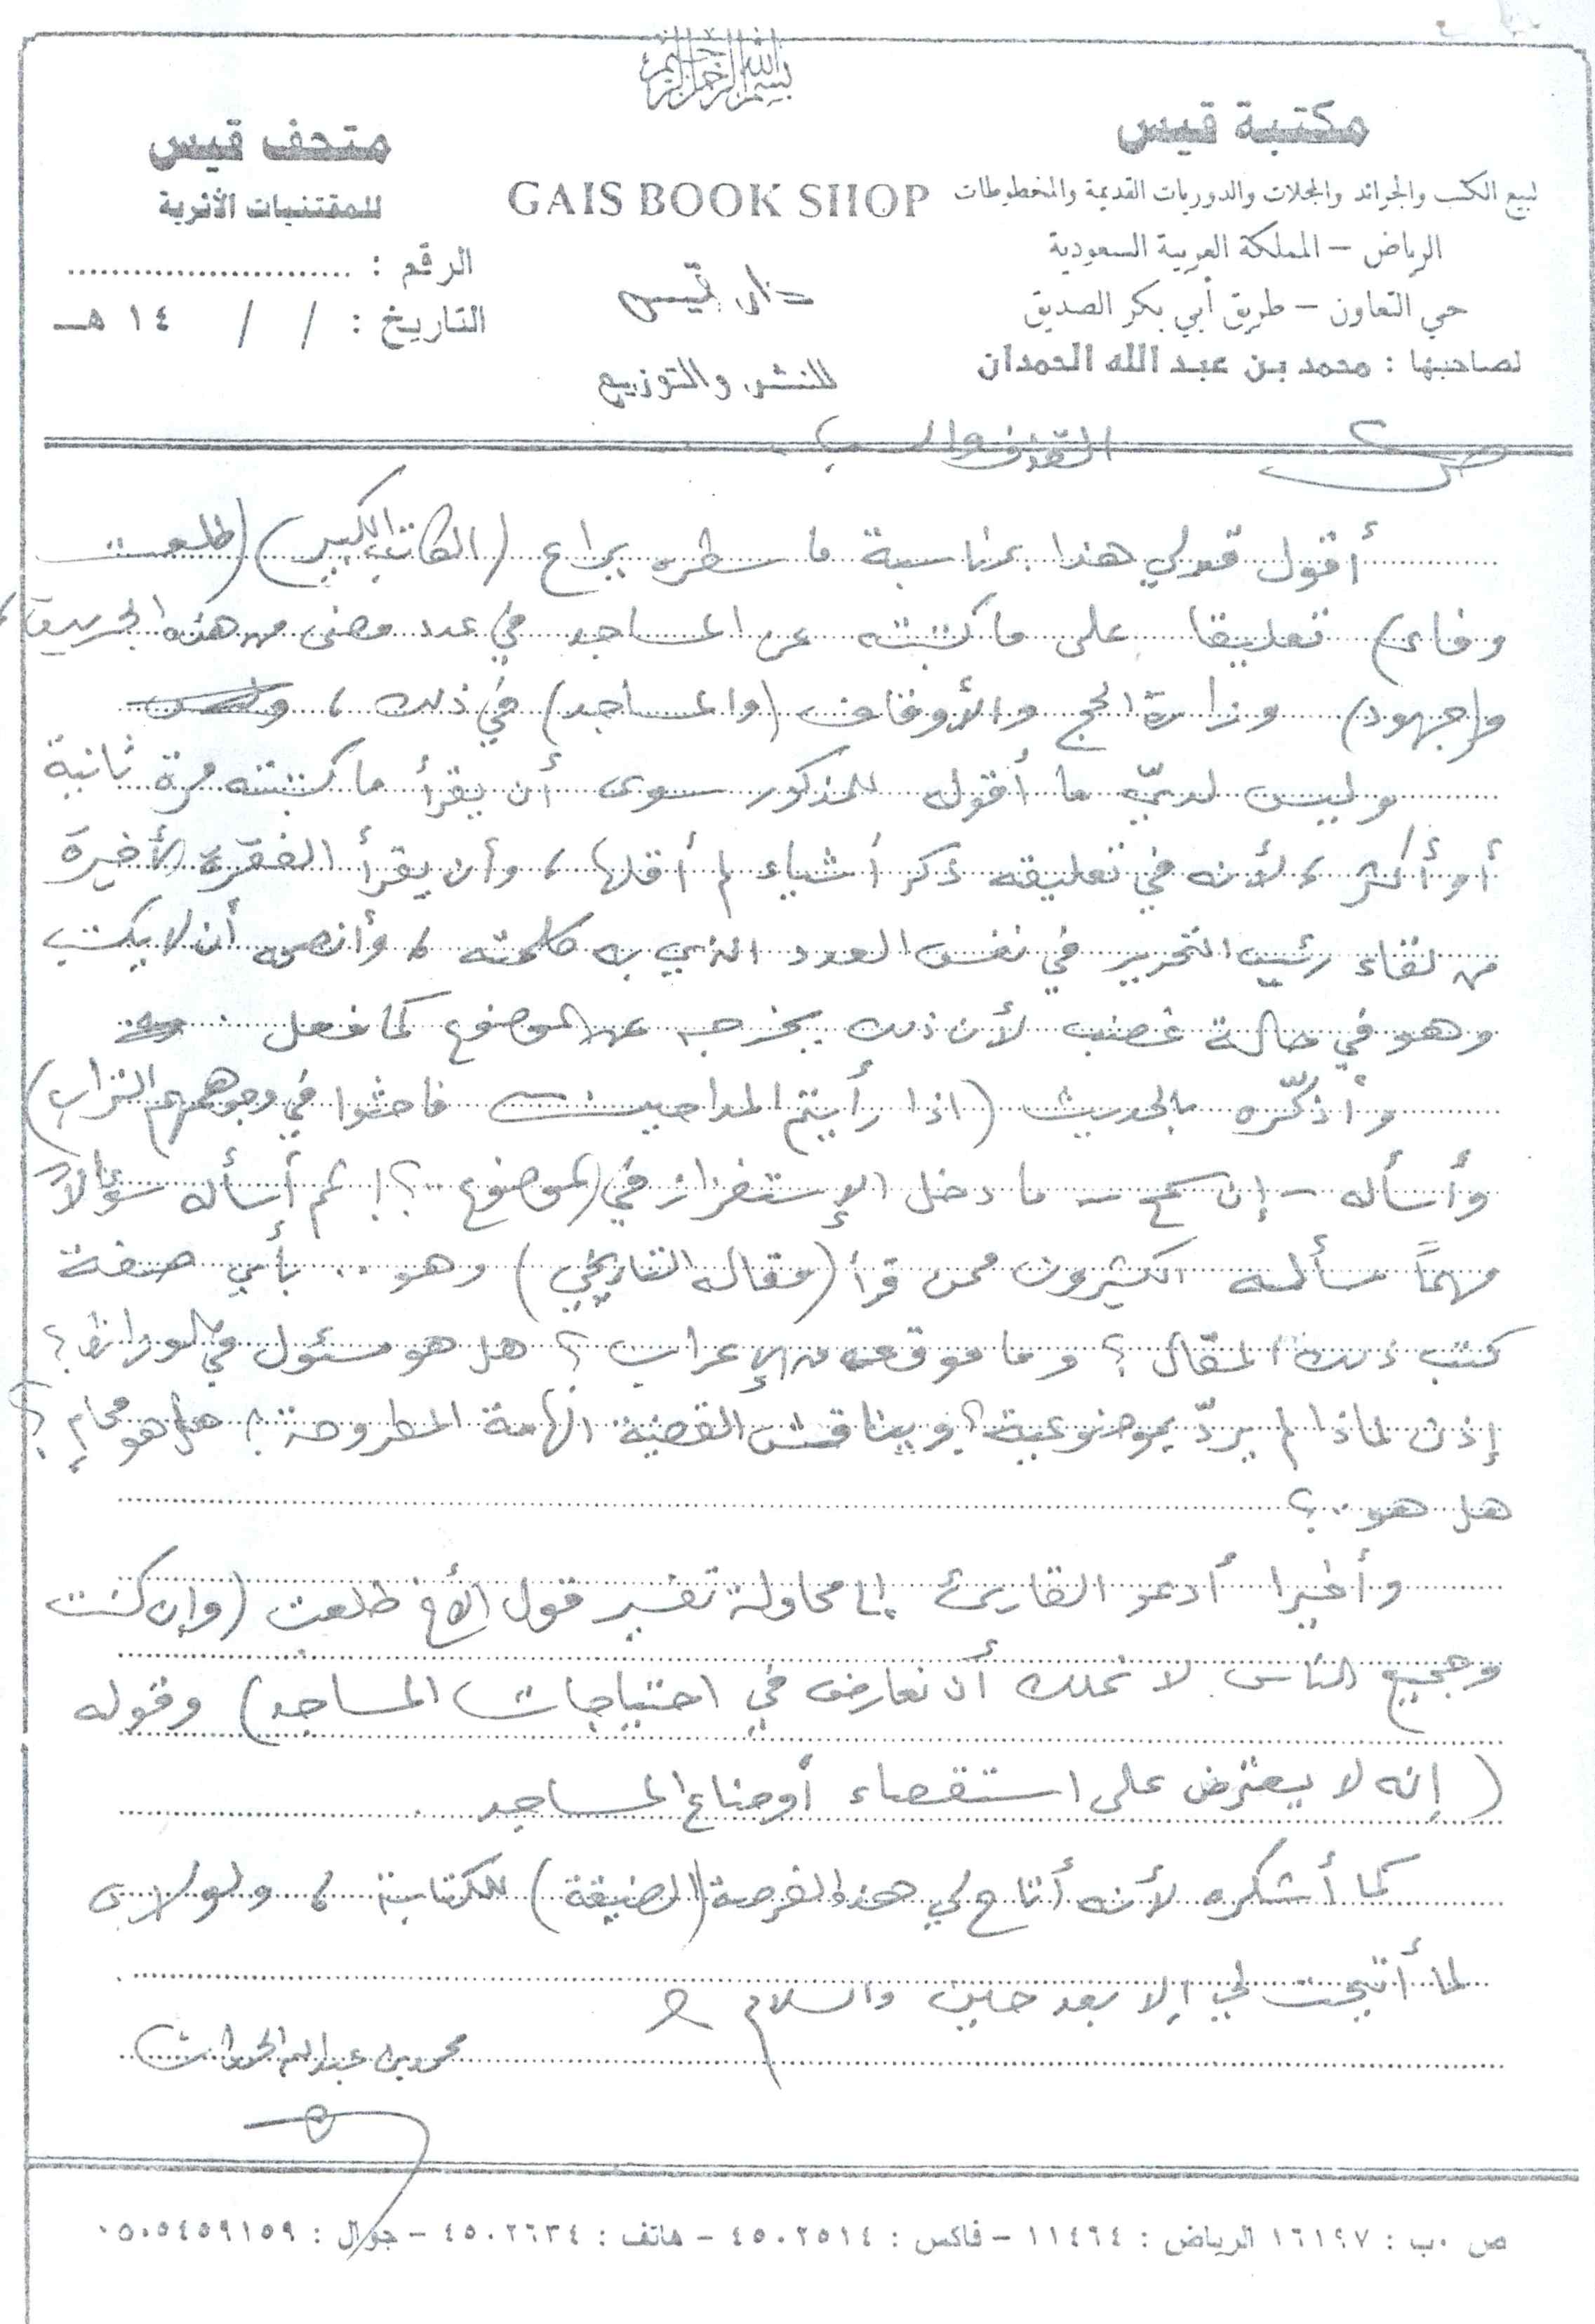 بسم الله الرحمن الرحيم
مكتبة قيس
لبيع الكتب والجرائد والمجلات والدوريات القديمة والمخطوطات
الرياض – المملكة العربية السعودية
حي التعاون – طريق أبي بكر الصديق
لصاحبها : محمد بن عبد الله الحمدان
GAIS BOOK SHOP
دار قيس
للنشر والتوزيع
متحف قيس
للمقتنيات الأثرية
الرقم : ..........................
التاريخ : / / ١٤ هـ
ص ٢
أقول قولي هذا بمناسبة ما سطره يراع (الكاتب الكبير) (طلعت
وفا) تعليقا على ما كتبته عن المساجد في عدد مضى من هذه الجريدة،
و(جهود) وزارة الحج والأوقاف (والمساجد) في ذلك ،
وليس لديّ ما أقول للمذكور سوى أن يقرأ ما كتبته مرة ثانية
أو أكثر ، لأنه في تعليقه ذكر أشياء لم أقلها ، وأن يقرأ الفقرة الأخيرة
من لقاء رئيس التحرير في نفس العدد الذي به كلمته ، وأنصحه أن لا يكتب
وهو في حالة غضب لأن ذلك يخرجه عن الموضوع كما فعل .
وأذكّره بالحديث (اذا رأيتم المداحين فاحثوا في وجوههم التراب)
وأسأله – إن سمح – ما دخل الإستفزاز في الموضوع ..؟! ثم أسأله سؤالاً
مهماً سأله الكثيرون ممن قرأ (مقاله التاريخي) وهو .. بأي صفة
كتب ذلك المقال ؟ وما موقعه من الإعراب ؟ هل هو مسئول في الوزارة ؟
إذن لماذا لم يردّ بموضوعية ؟ ويناقش القضية الهامة المطروحة ؟ هل هو محامٍ ؟
هل هو ..؟
وأخيرا أدعو القارئ إلى محاولة تفسير قول الأخ طلعت (وإن كنت
وجميع الناس لا نملك أن نعارض في احتياجات المساجد) وقوله
(إنه لا يعترض على استقصاء أوضاع المساجد
كما أشكره لأنه أتاح لي هذه الفرصة (الضيقة) للكتابة ، ولولا
لما أتيحت لي إلا بعد حين والسلام
محمد بن عبدالله الحمدان
ص.ب : ١٦١٩٧ الرياض : ١١٤٦٤ – فاكس : ٤٥٠٢٥١٤ – هاتف : ٤٥٠٢٦٣٤ – جوال : ٠٥٠٥٤٥٩١٥٩